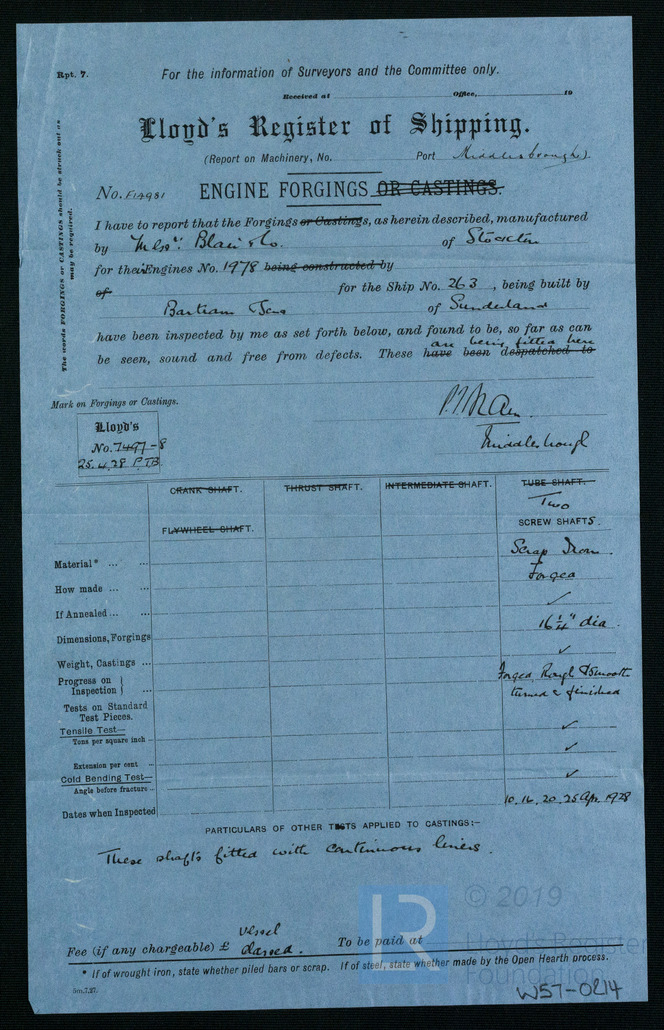 Rpt. 7.
For the information of Surveyors and the Committee only.
Received at Office, 19
Lloyd's Register of Shipping.
(Report on Machinery, No. Port Middlesbrough)
No. F14981 ENGINE FORGINGS OR CASTINGS.
The words FORGINGS or CASTINGS should be struck out as may be required.
I have to report that the Forgings or Castings, as herein described, manufactured
by Messrs. Blair & Co. of Stockton
for their Engines No. 1978 being constructed by
of for the Ship No. 263, being built by
Bartram & Sons of Sunderland
have been inspected by me as set forth below, and found to be, so far as can
are being fitted here
be seen, sound and free from defects. These have been despatched to
Mark on Forgings or Castings.
Lloyd's
No. 7497-8
25.4.28 P.T.B.
Middlesbrough
CRANK SHAFT. THRUST SHAFT. INTERMEDIATE SHAFT. TUBE SHAFT.
Two
FLYWHEEL SHAFT. SCREW SHAFTS.
Material* ... ... Scrap Iron.
How made ... ... Forged
If Annealed ... ... ✓
Dimensions, Forgings 16 1/4" dia.
Weight, Castings ... ✓
Progress on Inspection } ... Forged, Rough & Smooth
turned & finished
Tests on Standard
Test Pieces.
Tensile Test—
Tons per square inch .. ✓
Extension per cent .. ✓
Cold Bending Test— ✓
Angle before fracture ..
Dates when Inspected 10. 16. 20. 25 Apr. 1928
PARTICULARS OF OTHER TESTS APPLIED TO CASTINGS:-
These shafts fitted with continuous liners.
vessel
Fee (if any chargeable) £ classed. To be paid at
* If of wrought iron, state whether piled bars or scrap. If of steel, state whether made by the Open Hearth process.
5m,7,27.
© 2019
Lloyd's Register
Foundation
LR
W57-0214